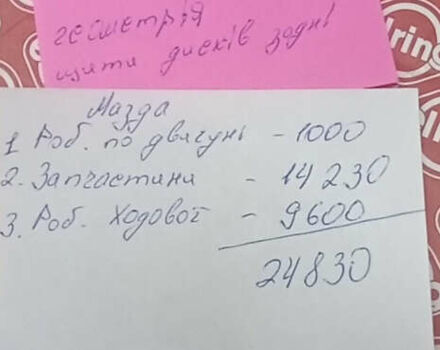 геометрія
щити дисків задні
elring
Мазда
1 Роб. по двигуні - 1000
2. Запчастини - 14 230
3. Роб. Ходової - 9600
24830